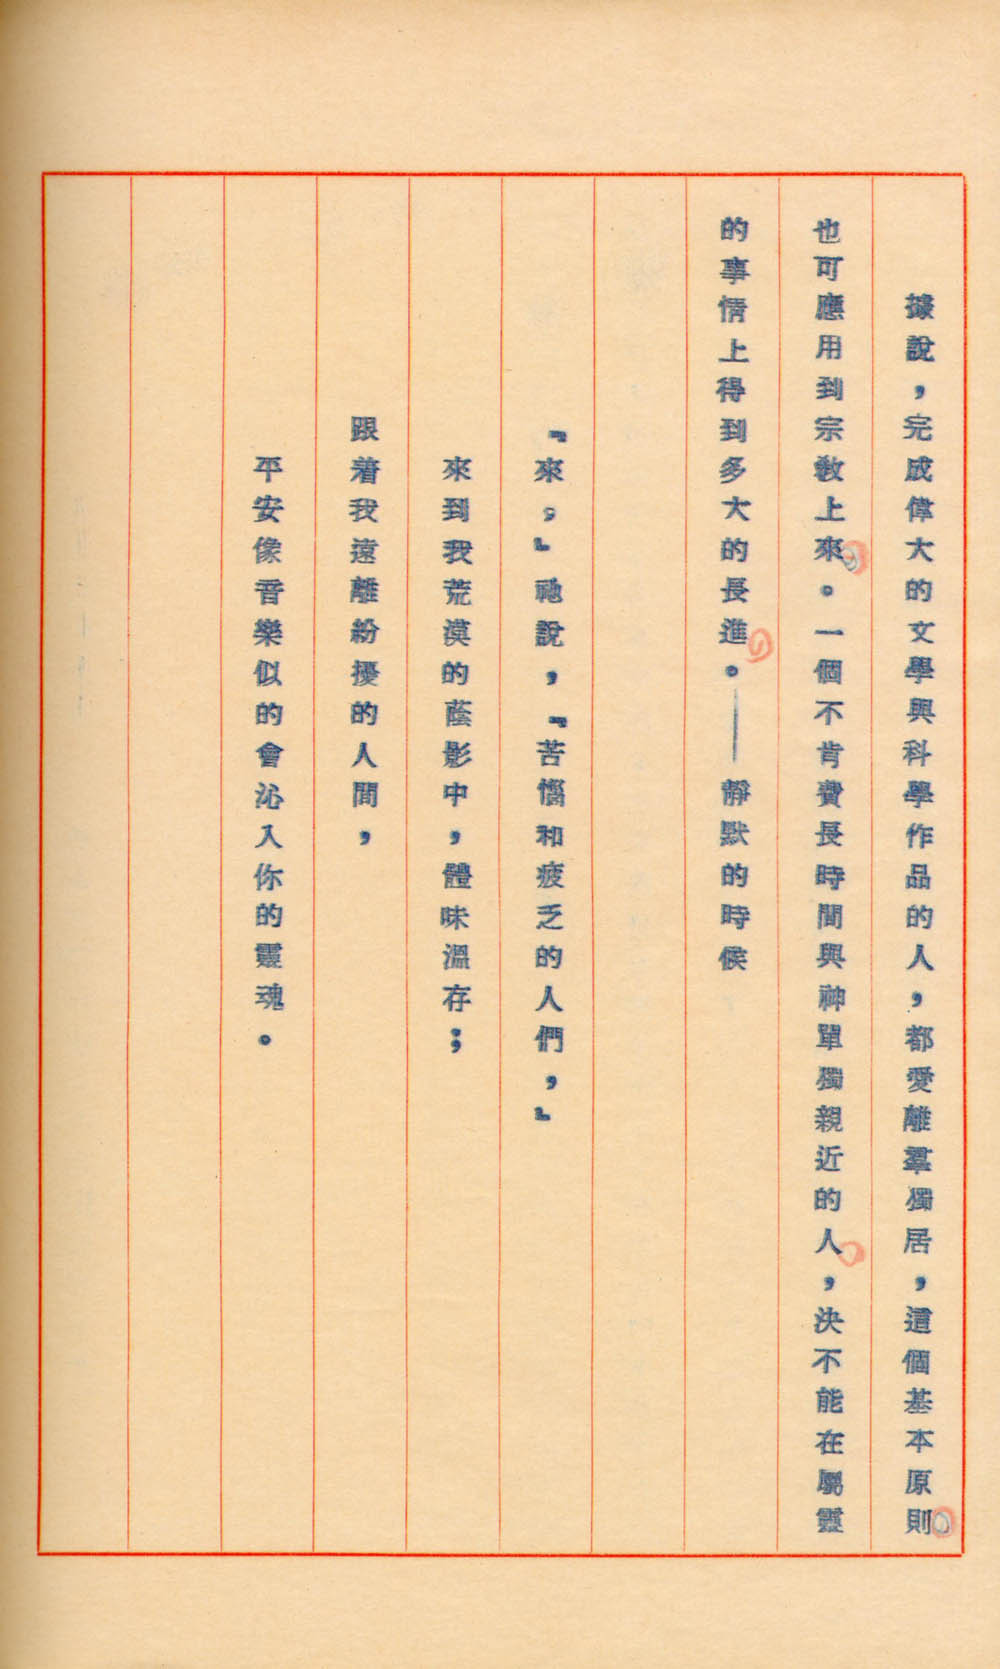 據說，完成偉大的文學與科學作品的人，都愛離羣獨居，這個基本原則
也可應用到宗教上來。一個不肯費長時間與神單獨親近的人，決不能在屬靈
的事情上得到多大的長進。——靜默的時候
『來，』祂說，『苦惱和疲乏的人們，』
來到我荒漠的蔭影中，體味溫存；
跟着我遠離紛擾的人間，
平安像音樂似的會沁入你的靈魂。